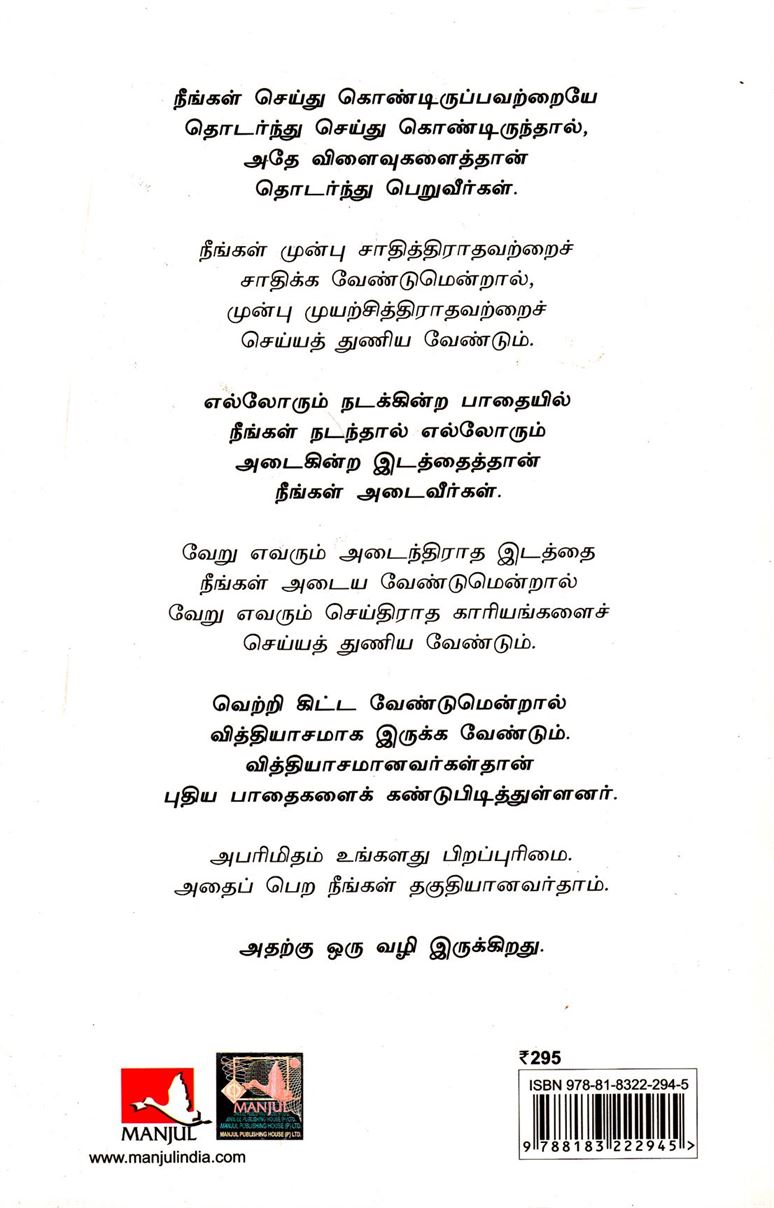 நீங்கள் செய்து கொண்டிருப்பவற்றையே
தொடர்ந்து செய்து கொண்டிருந்தால்,
அதே விளைவுகளைத்தான்
தொடர்ந்து பெறுவீர்கள்.
நீங்கள் முன்பு சாதித்திராதவற்றைச்
சாதிக்க வேண்டுமென்றால்,
முன்பு முயற்சித்திராதவற்றைச்
செய்யத் துணிய வேண்டும்.
எல்லோரும் நடக்கின்ற பாதையில்
நீங்கள் நடந்தால் எல்லோரும்
அடைகின்ற இடத்தைத்தான்
நீங்கள் அடைவீர்கள்.
வேறு எவரும் அடைந்திராத இடத்தை
நீங்கள் அடைய வேண்டுமென்றால்
வேறு எவரும் செய்திராத காரியங்களைச்
செய்யத் துணிய வேண்டும்.
வெற்றி கிட்ட வேண்டுமென்றால்
வித்தியாசமாக இருக்க வேண்டும்.
வித்தியாசமானவர்கள்தான்
புதிய பாதைகளைக் கண்டுபிடித்துள்ளனர்.
அபரிமிதம் உங்களது பிறப்புரிமை.
அதைப் பெற நீங்கள் தகுதியானவர்தாம்.
அதற்கு ஒரு வழி இருக்கிறது.
MANJUL
www.manjulindia.com
MANJUL
MANJUL PUBLISHING HOUSE (P) LTD.
MANJUL PUBLISHING HOUSE (P) LTD.
₹295
ISBN 978-81-8322-294-5
9 788183 222945 >